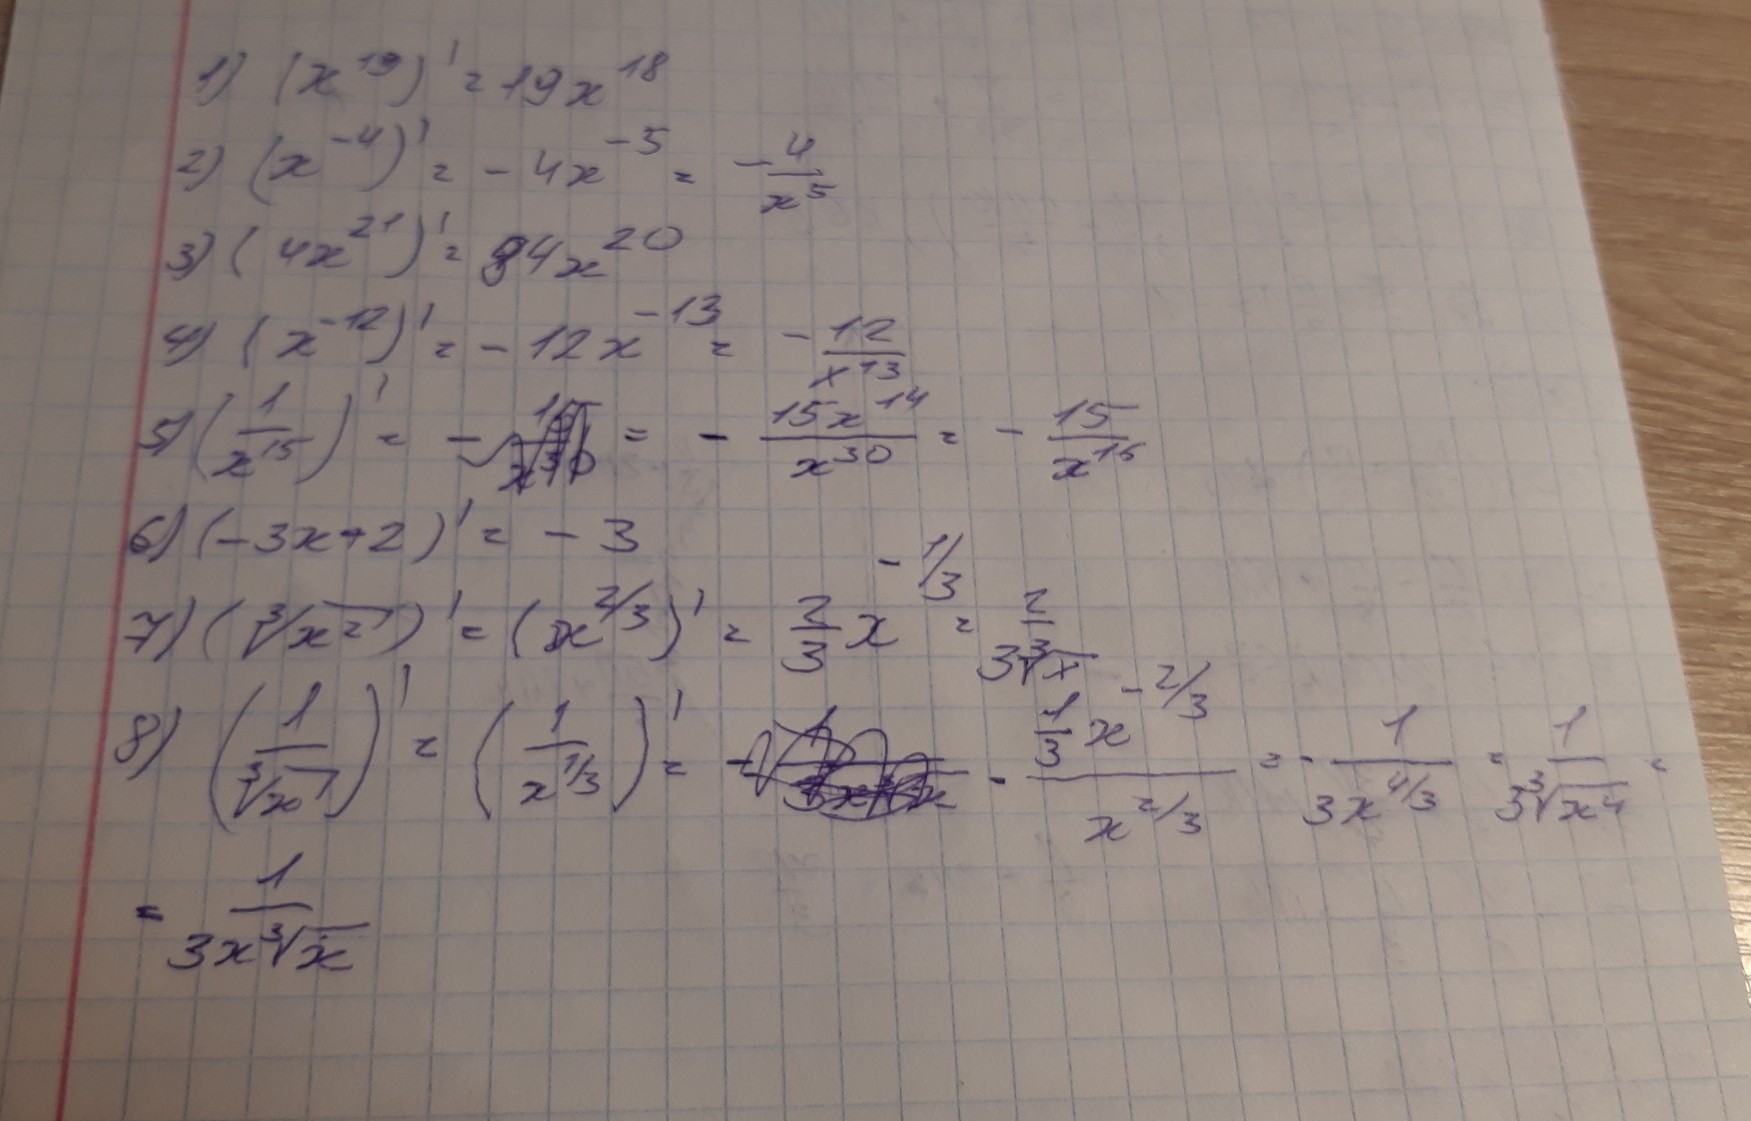 1) (x^19)' = 19x^18
2) (x^-4)' = -4x^-5 = -4/x^5
3) (4x^21)' = 84x^20
4) (x^-12)' = -12x^-13 = -12/x^13
5) (1/x^15)' = - = -15x^14/x^30 = -15/x^16
6) (-3x+2)' = -3
7) (∛x²)' = (x^2/3)' = 2/3 x^-1/3 = 2/3∛x
8) (1/∛x)' = (1/x^1/3)' = - 1/3 x^-2/3 / x^2/3 = - 1/3x^4/3 = 1/3∛x4 =
= 1/3x∛x